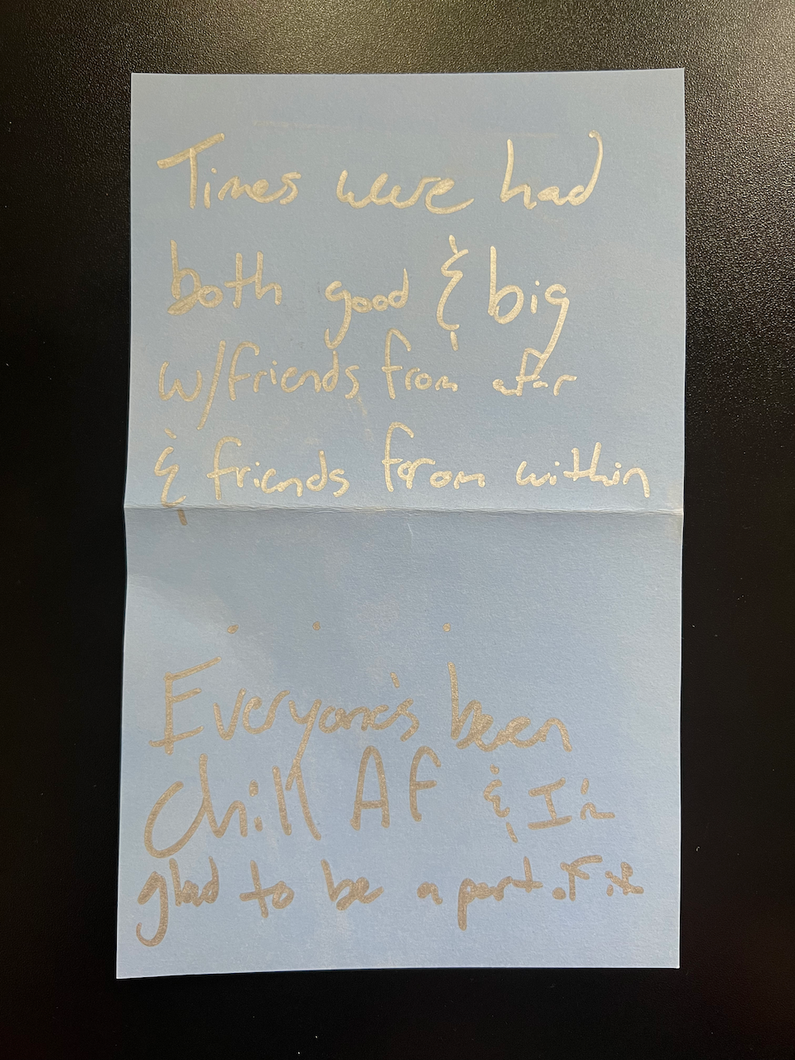 Times were had
both good & big
w/friends from afar
& friends from within
. . .
Everyone's been
chill AF & I'm
glad to be a part of it